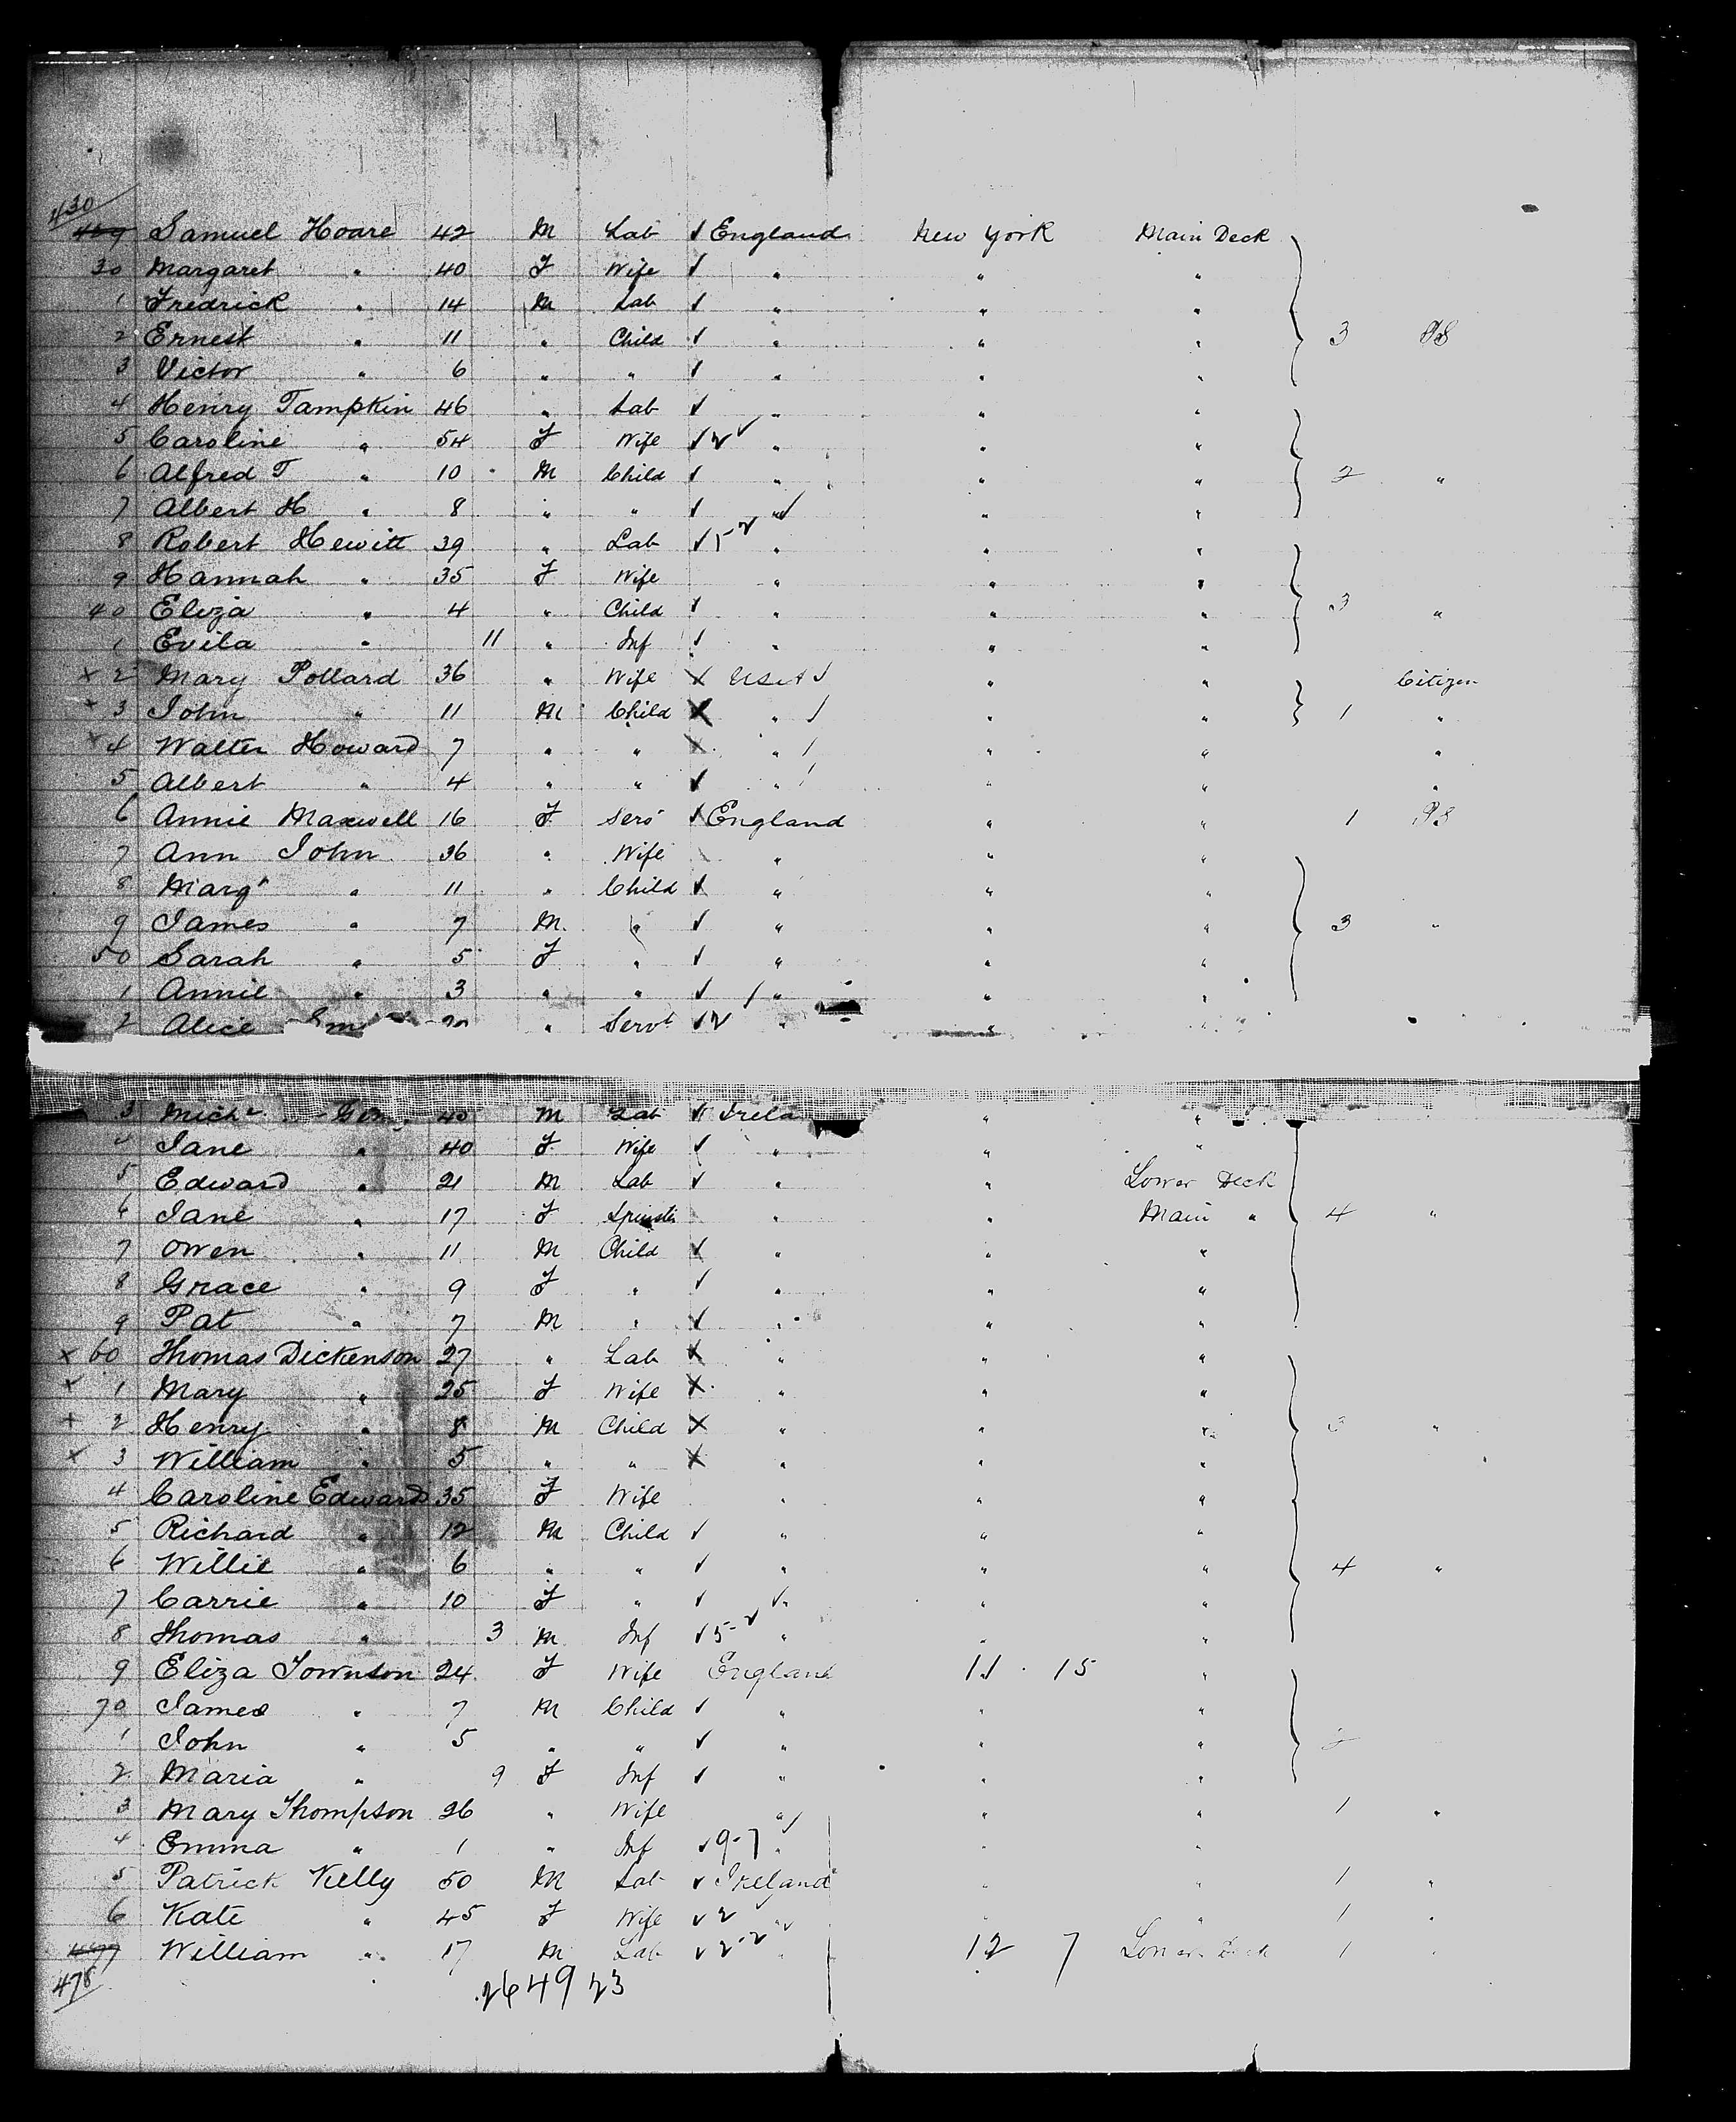 430
429 Samuel Hoare 42 M Lab ✓ England New York Main Deck
30 Margaret " 40 F Wife ✓ " " "
1 Fredrick " 14 M Lab ✓ " " "
2 Ernest " 11 " Child ✓ " " " 3 PS
3 Victor " 6 " " ✓ " " "
4 Henry Tampkin 46 " Lab ✓ " " "
5 Caroline " 54 F Wife ✓ 2 ✓ " " "
6 Alfred T " 10 M Child ✓ " " " 2 "
7 Albert H " 8 " " ✓ " ✓ " "
8 Robert Hewitt 39 " Lab ✓ 5-2 " " "
9 Hannah " 35 F Wife " " "
40 Eliza " 4 " Child ✓ " " " 3 "
1 Evila " 11 " Inf ✓ " " "
x 2 Mary Pollard 36 " Wife x USA ✓ " " Citizen
x 3 John " 11 M Child x " ✓ " " 1 "
x 4 Walter Howard 7 " " x " / " " "
5 Albert " 4 " " ✓ " / " " "
6 Annie Maxwell 16 F Serv ✓ England " " 1 PS
7 Ann John 36 " Wife " " "
8 Margt " 11 " Child ✓ " " "
9 James " 7 M " ✓ " " " 3 "
50 Sarah " 5 F " ✓ " " "
1 Annie " 3 " " ✓ / " " "
2 Alice " Servt ✓ 2 " "
3 Michl 40 M Lab ✓ Irela " "
4 Jane " 40 F Wife ✓ " " "
5 Edward " 21 M Lab ✓ " " Lower Deck
6 Jane " 17 F Spinster " " Main " 4 "
7 Owen " 11 M Child ✓ " " "
8 Grace " 9 F " ✓ " " "
9 Pat " 7 M " ✓ " " "
x 60 Thomas Dickenson 27 " Lab x " " "
x 1 Mary " 25 F Wife x " " "
x 2 Henry " 8 M Child x " " " 3 "
x 3 William " 5 " " x " " "
4 Caroline Edwards 35 F Wife " " "
5 Richard " 12 M Child ✓ " " "
6 Willie " 6 " " ✓ " " " 4 "
7 Carrie " 10 F " ✓ " " "
8 Thomas " 3 M Inf ✓ 5-2 " " "
9 Eliza Townson 24 F Wife England 11 . 15 "
70 James " 7 M Child ✓ " " "
1 John " 5 " " ✓ " " " 2
2 Maria " 9 F Inf ✓ " " "
3 Mary Thompson 26 " Wife " ✓ " " 1 "
4 Emma " 1 " Inf ✓ 9-7 " " "
5 Patrick Kelly 50 M Lab ✓ Ireland " " 1 "
6 Kate " 45 F Wife ✓ 2 " " " 1 "
477 William " 17 M Lab ✓ 2-2 " 12 7 Lower Deck 1 "
478
264923